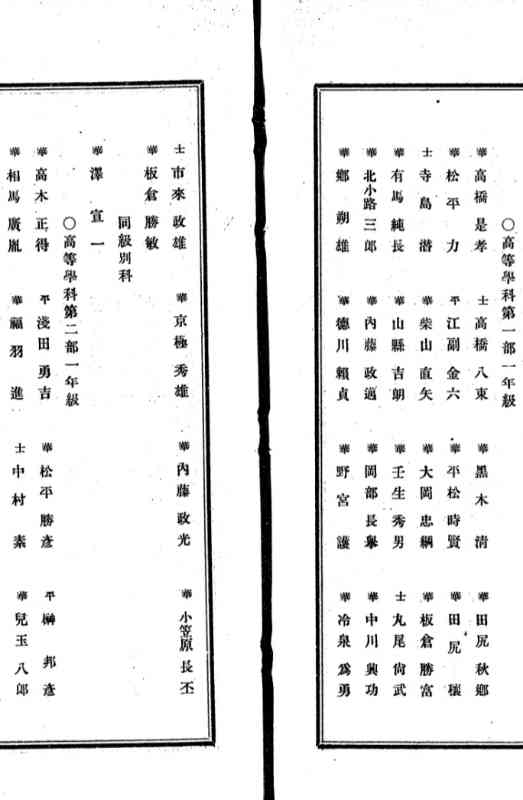 〇高等學科第一部一年級
華 高橋是孝 士 高橋八束 華 黑木清 華 田尻秋鄕
華 松平力 平 江副金六 華 平松時賢 華 田尻穰
士 寺島潜 華 柴山直矢 華 大岡忠綱 華 板倉勝富
華 有馬純長 華 山縣吉朗 華 壬生秀男 士 丸尾尙武
華 北小路三郎 華 內藤政邁 華 岡部長擧 華 中川興功
華 鄕朔雄 華 德川賴貞 華 野宮護 華 冷泉爲勇
士 市來政雄 華 京極秀雄 華 內藤政光 華 小笠原長丕
華 板倉勝敏
同級別科
華 澤宣一
〇高等學科第二部一年級
華 高木正得 平 淺田勇吉 華 松平勝彥 平 榊邦彥
華 相馬廣胤 華 福羽進 士 中村素 華 兒玉八郞